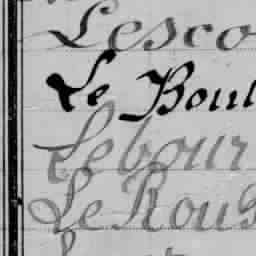 Lesco
Le Boul
Lebour
Le Rous